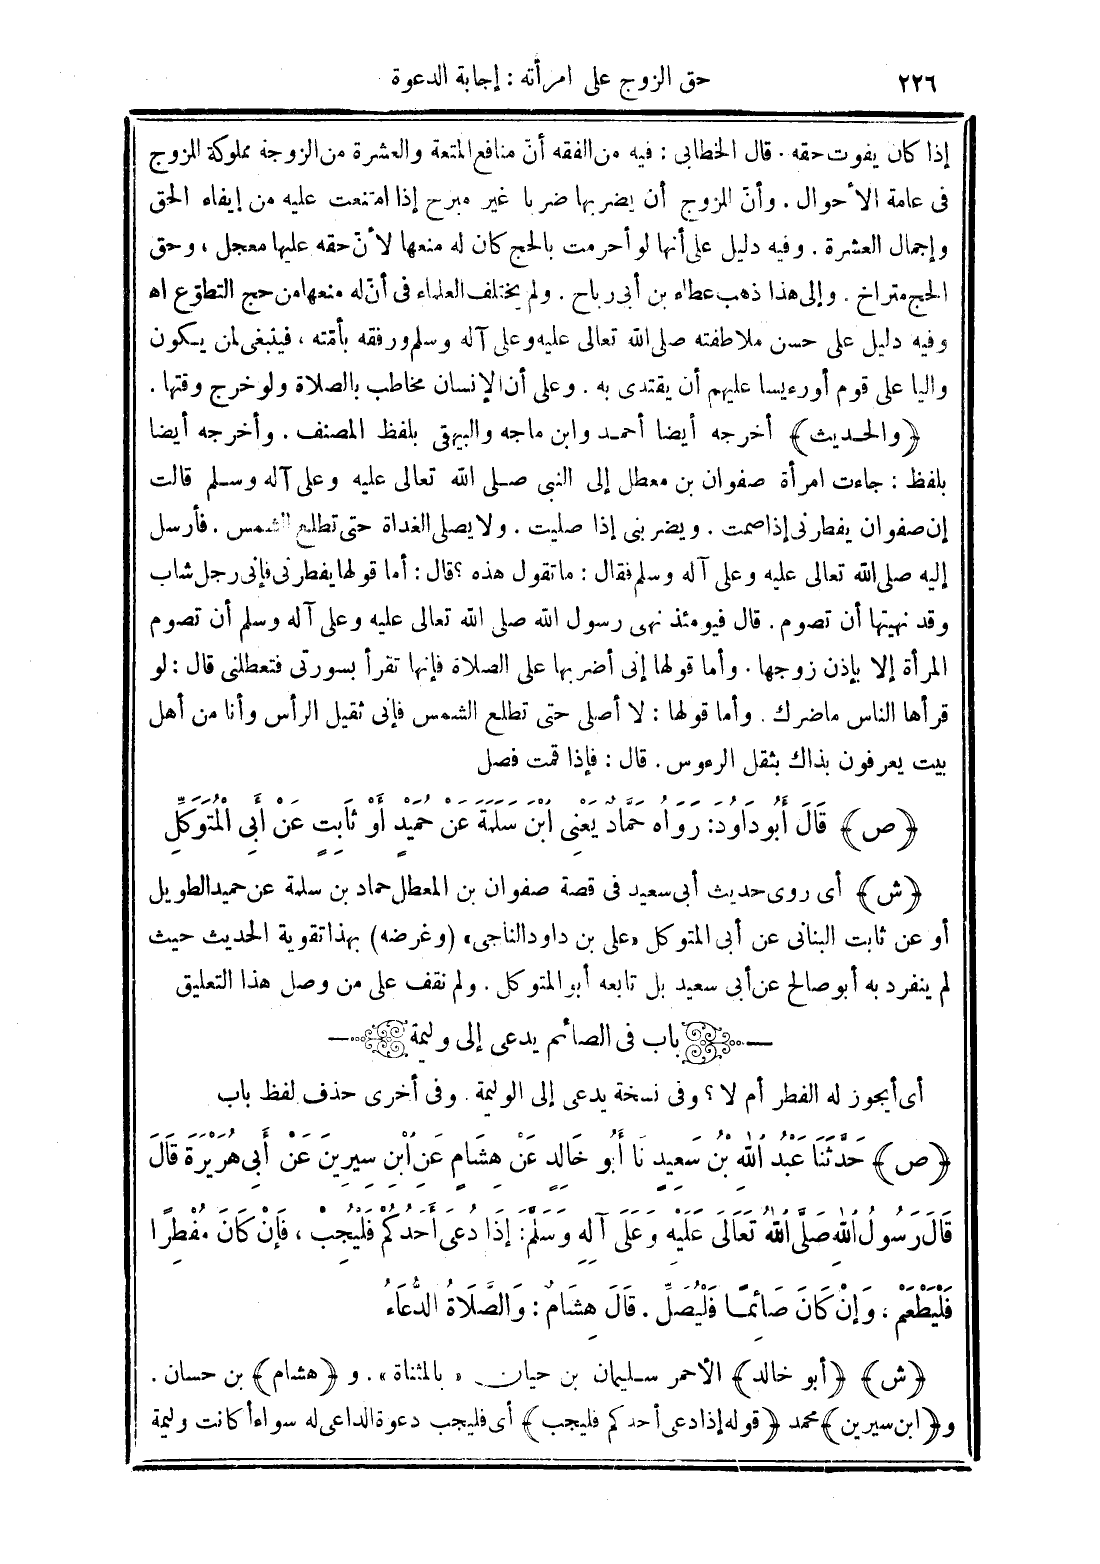 ٢٢٦ حق الزوج على امرأته : إجابة الدعوة
إذا كان يفوت حقه . قال الخطابى : فيه من الفقه أنّ منافع المتعة والعشرة من الزوجة مملوكة للزوج
فى عامة الأحوال . وأنّ للزوج أن يضربها ضربا غير مبرح إذا امتنعت عليه من إيفاء الحق
وإجمال العشرة . وفيه دليل على أنها لو أحرمت بالحج كان له منعها لأنّ حقه عليها معجل ، وحق
الحج متراخ . وإلى هذا ذهب عطاء بن أبى رباح . ولم يختلف العلماء فى أنّ له منعها من حج التطوّع اه
وفيه دليل على حسن ملاطفته صلى الله تعالى عليه وعلى آله وسلم ورفقه بأمّته ، فينبغى لمن يكون
واليا على قوم أو رءيسا عليهم أن يقتدى به . وعلى أن الإنسان مخاطب بالصلاة ولو خرج وقتها .
﴿والحديث﴾ أخرجه أيضا أحمد وابن ماجه والبيهقى بلفظ المصنف . وأخرجه أيضا
بلفظ : جاءت امرأة صفوان بن معطل إلى النبى صلى الله تعالى عليه وعلى آله وسلم قالت
إن صفوان يفطرنى إذا صمت . ويضربنى إذا صليت . ولا يصلى الغداة حتى تطلع الشمس . فأرسل
إليه صلى الله تعالى عليه وعلى آله وسلم فقال : ما تقول هذه ؟ قال : أما قولها يفطرنى فإنى رجل شاب
وقد نهيتها أن تصوم . قال فيومئذ نهى رسول الله صلى الله تعالى عليه وعلى آله وسلم أن تصوم
المرأة إلا بإذن زوجها . وأما قولها إنى أضربها على الصلاة فإنها تقرأ بسورتى فتعطلنى قال : لو
قرأها الناس ما ضرك . وأما قولها : لا أصلى حتى تطلع الشمس فإنى ثقيل الرأس وأنا من أهل
بيت يعرفون بذاك بثقل الرءوس . قال : فإذا قمت فصل
﴿ص﴾ قَالَ أَبُو دَاوُدَ: رَوَاهُ حَمَّادٌ يَعْنِى ابْنَ سَلَمَةَ عَنْ حُمَيْدٍ أَوْ ثَابِتٍ عَنْ أَبِى الْمُتَوَكِّلِ
﴿ش﴾ أى روى حديث أبى سعيد فى قصة صفوان بن المعطل حماد بن سلمة عن حميد الطويل
أو عن ثابت البنانى عن أبى المتوكل «على بن داود الناجى» (وغرضه) بهذا تقوية الحديث حيث
لم ينفرد به أبو صالح عن أبى سعيد بل تابعه أبو المتوكل . ولم نقف على من وصل هذا التعليق
باب فى الصائم يدعى إلى وليمة
أى أيجوز له الفطر أم لا ؟ وفى نسخة يدعى إلى الوليمة . وفى أخرى حذف لفظ باب
﴿ص﴾ حَدَّثَنَا عَبْدُ اللهِ بْنُ سَعِيدٍ نَا أَبُو خَالِدٍ عَنْ هِشَامٍ عَنِ ابْنِ سِيرِينَ عَنْ أَبِى هُرَيْرَةَ قَالَ
قَالَ رَسُولُ اللهِ صَلَّى اللهُ تَعَالَى عَلَيْهِ وَعَلَى آلِهِ وَسَلَّمَ: إِذَا دُعِىَ أَحَدُكُمْ فَلْيُجِبْ ، فَإِنْ كَانَ مُفْطِرًا
فَلْيَطْعَمْ ، وَإِنْ كَانَ صَائِمًا فَلْيُصَلِّ . قَالَ هِشَامٌ : وَالصَّلَاةُ الدُّعَاءُ
﴿ش﴾ ﴿أبو خالد﴾ الأحمر سليمان بن حيان « بالمثناة » . و ﴿هشام﴾ بن حسان .
و﴿ابن سيرين﴾ محمد ﴿قوله إذا دعى أحدكم فليجب﴾ أى فليجب دعوة الداعى له سواء أكانت وليمة